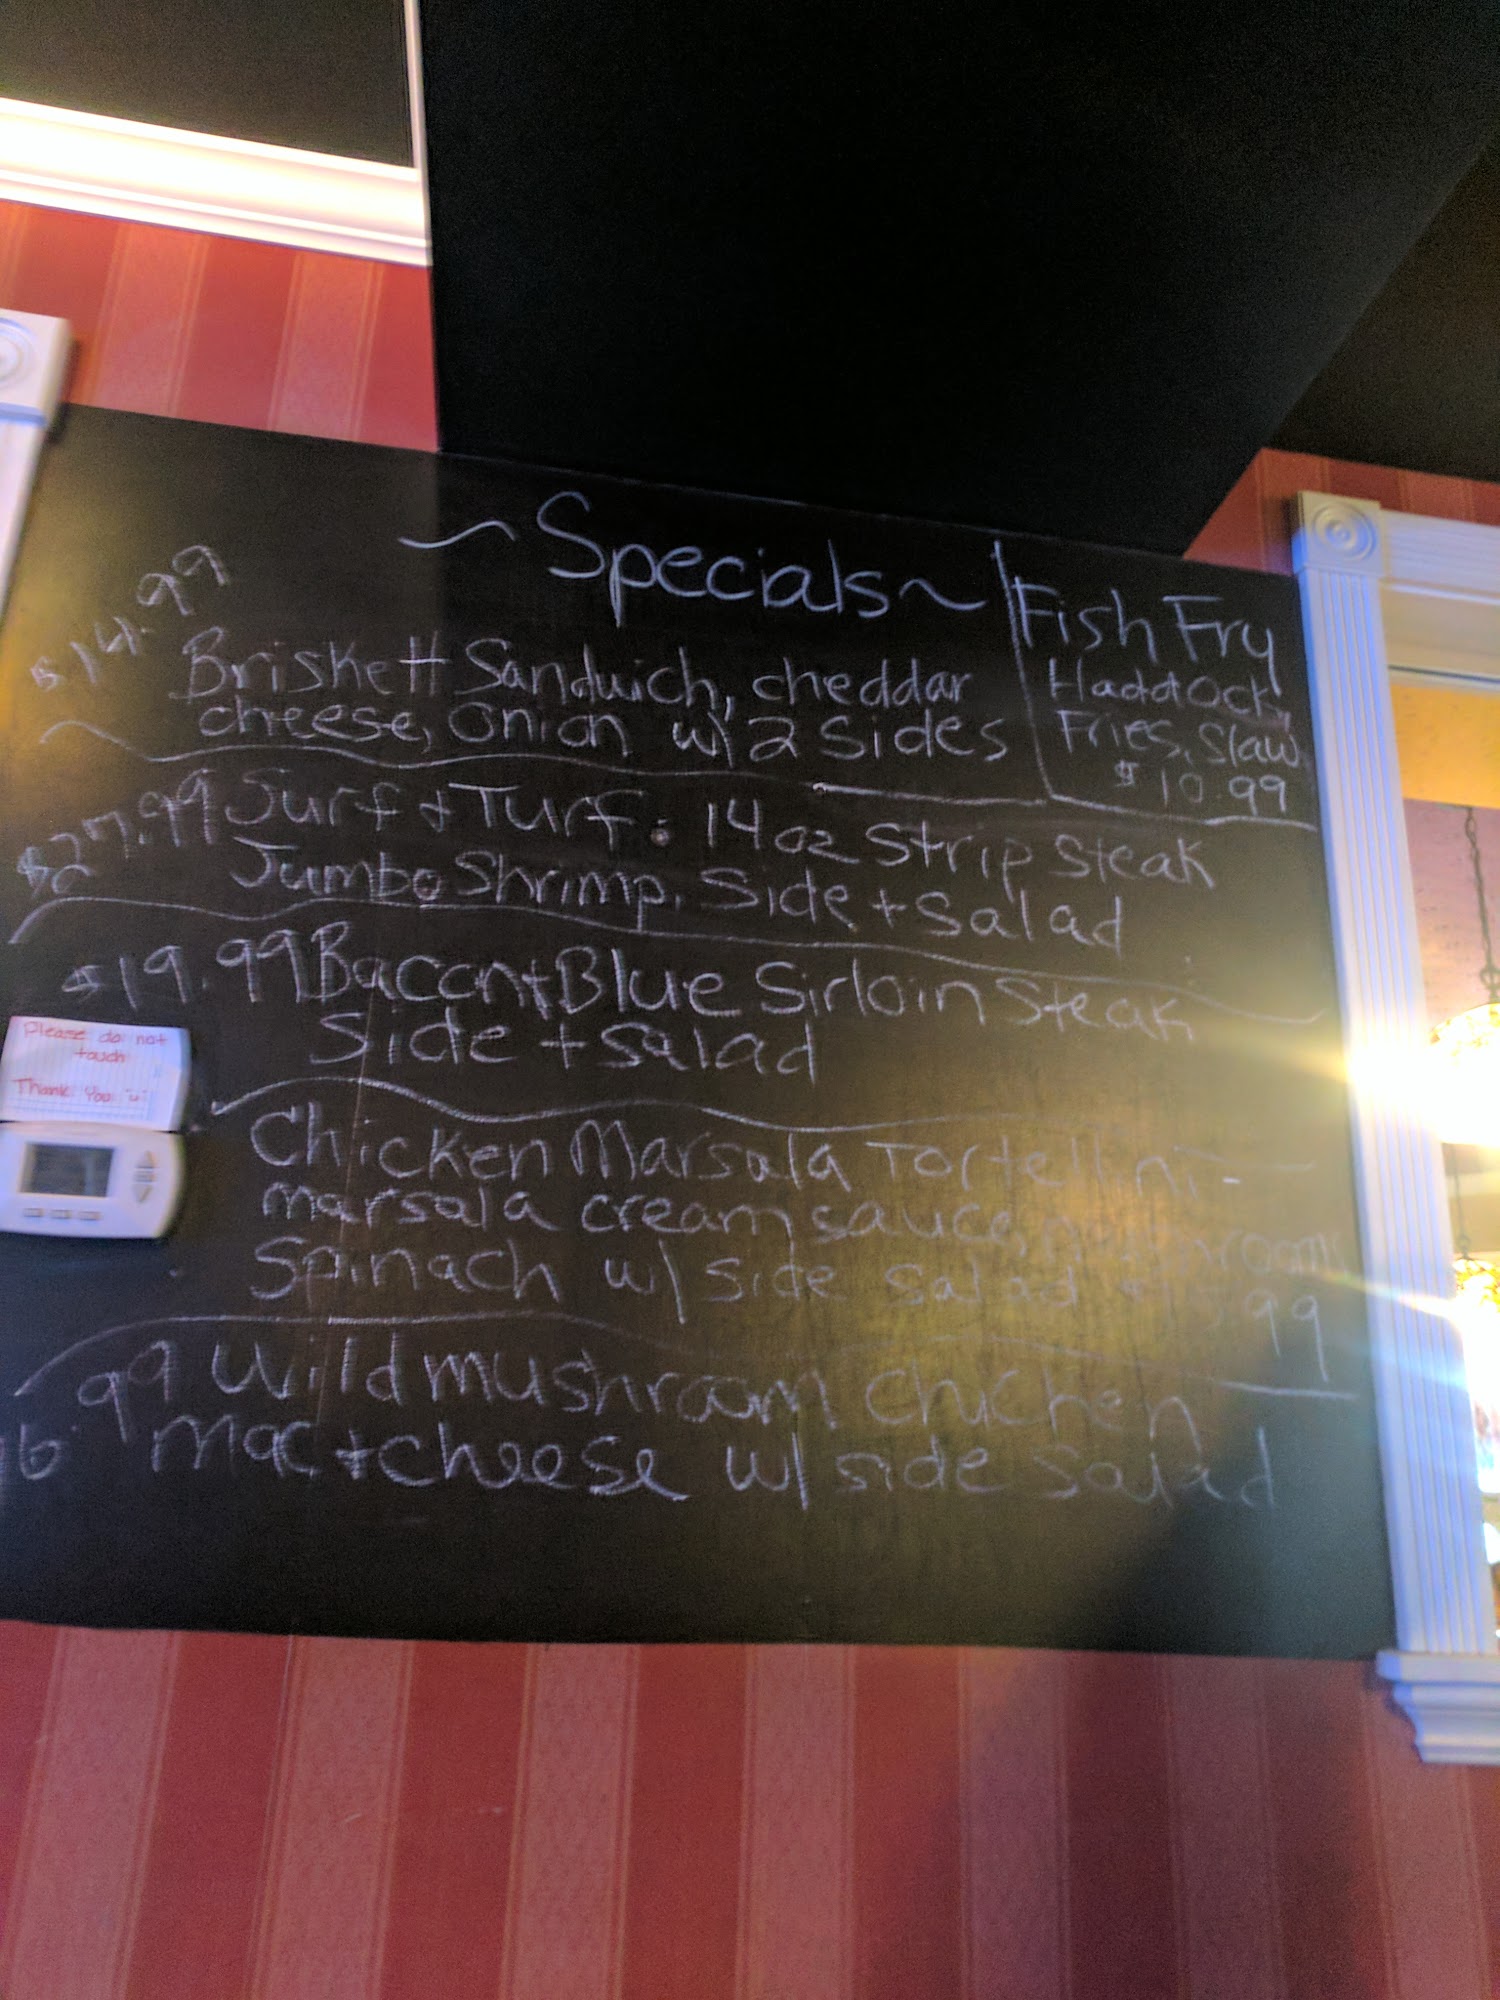 ~Specials~
$14.99
Briskett Sandwich, cheddar
cheese, onion w/ 2 sides
Fish Fry
Haddock,
Fries, Slaw
$10.99
$27.99 Surf + Turf. 14oz Strip Steak
Jumbo Shrimp, Side + Salad
$19.99 Bacon + Blue Sirloin Steak
Side + Salad
Chicken Marsala Tortellini -
marsala cream sauce, mushrooms
Spinach w/ side salad
.99
6.99 Wild mushroom chicken
Mac + cheese w/ side salad
Please do not
touch
Thank You